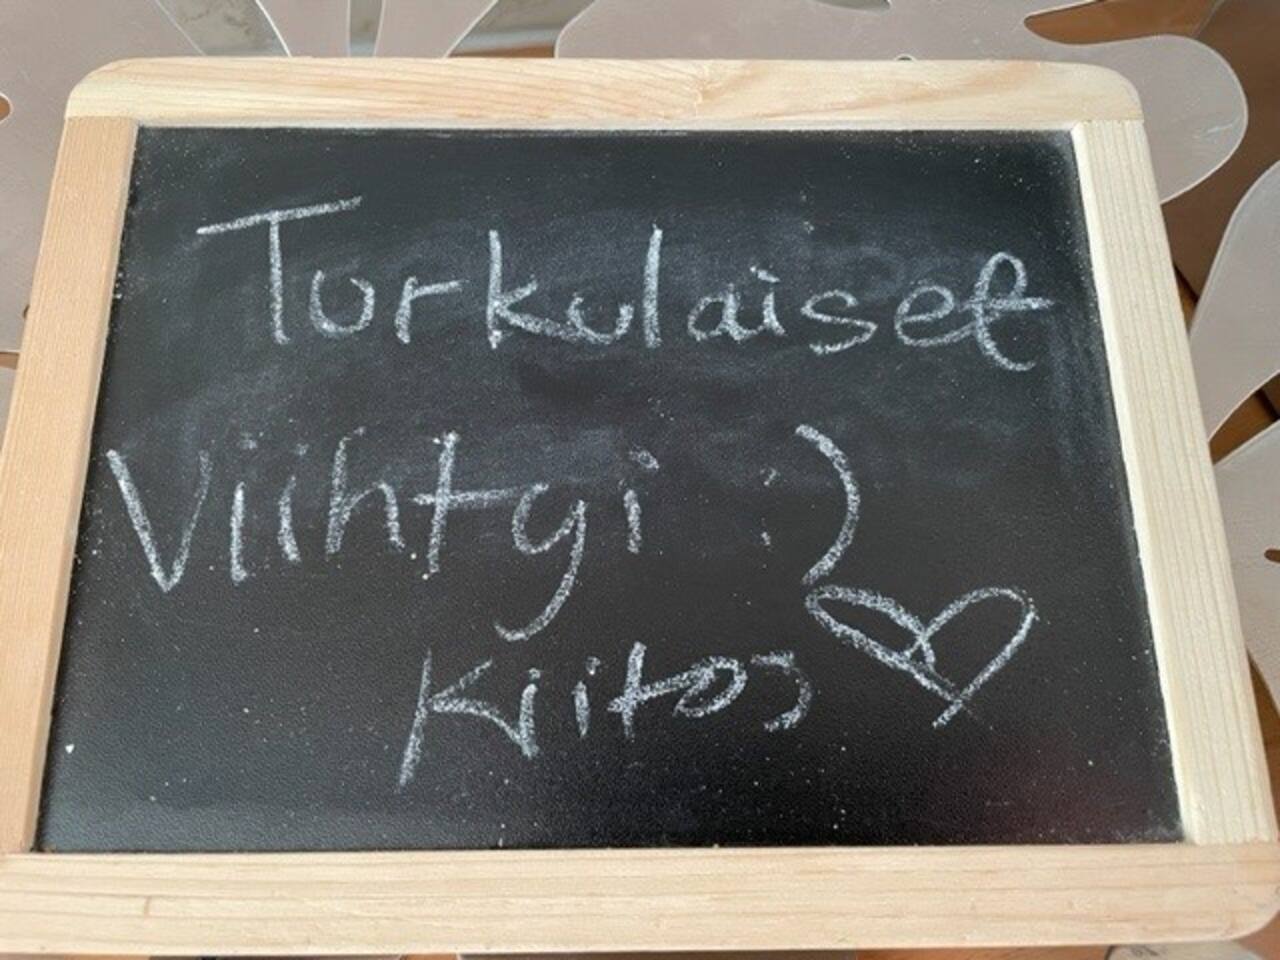 Turkulaiset
Viihtyi :)
Kiitos ♡